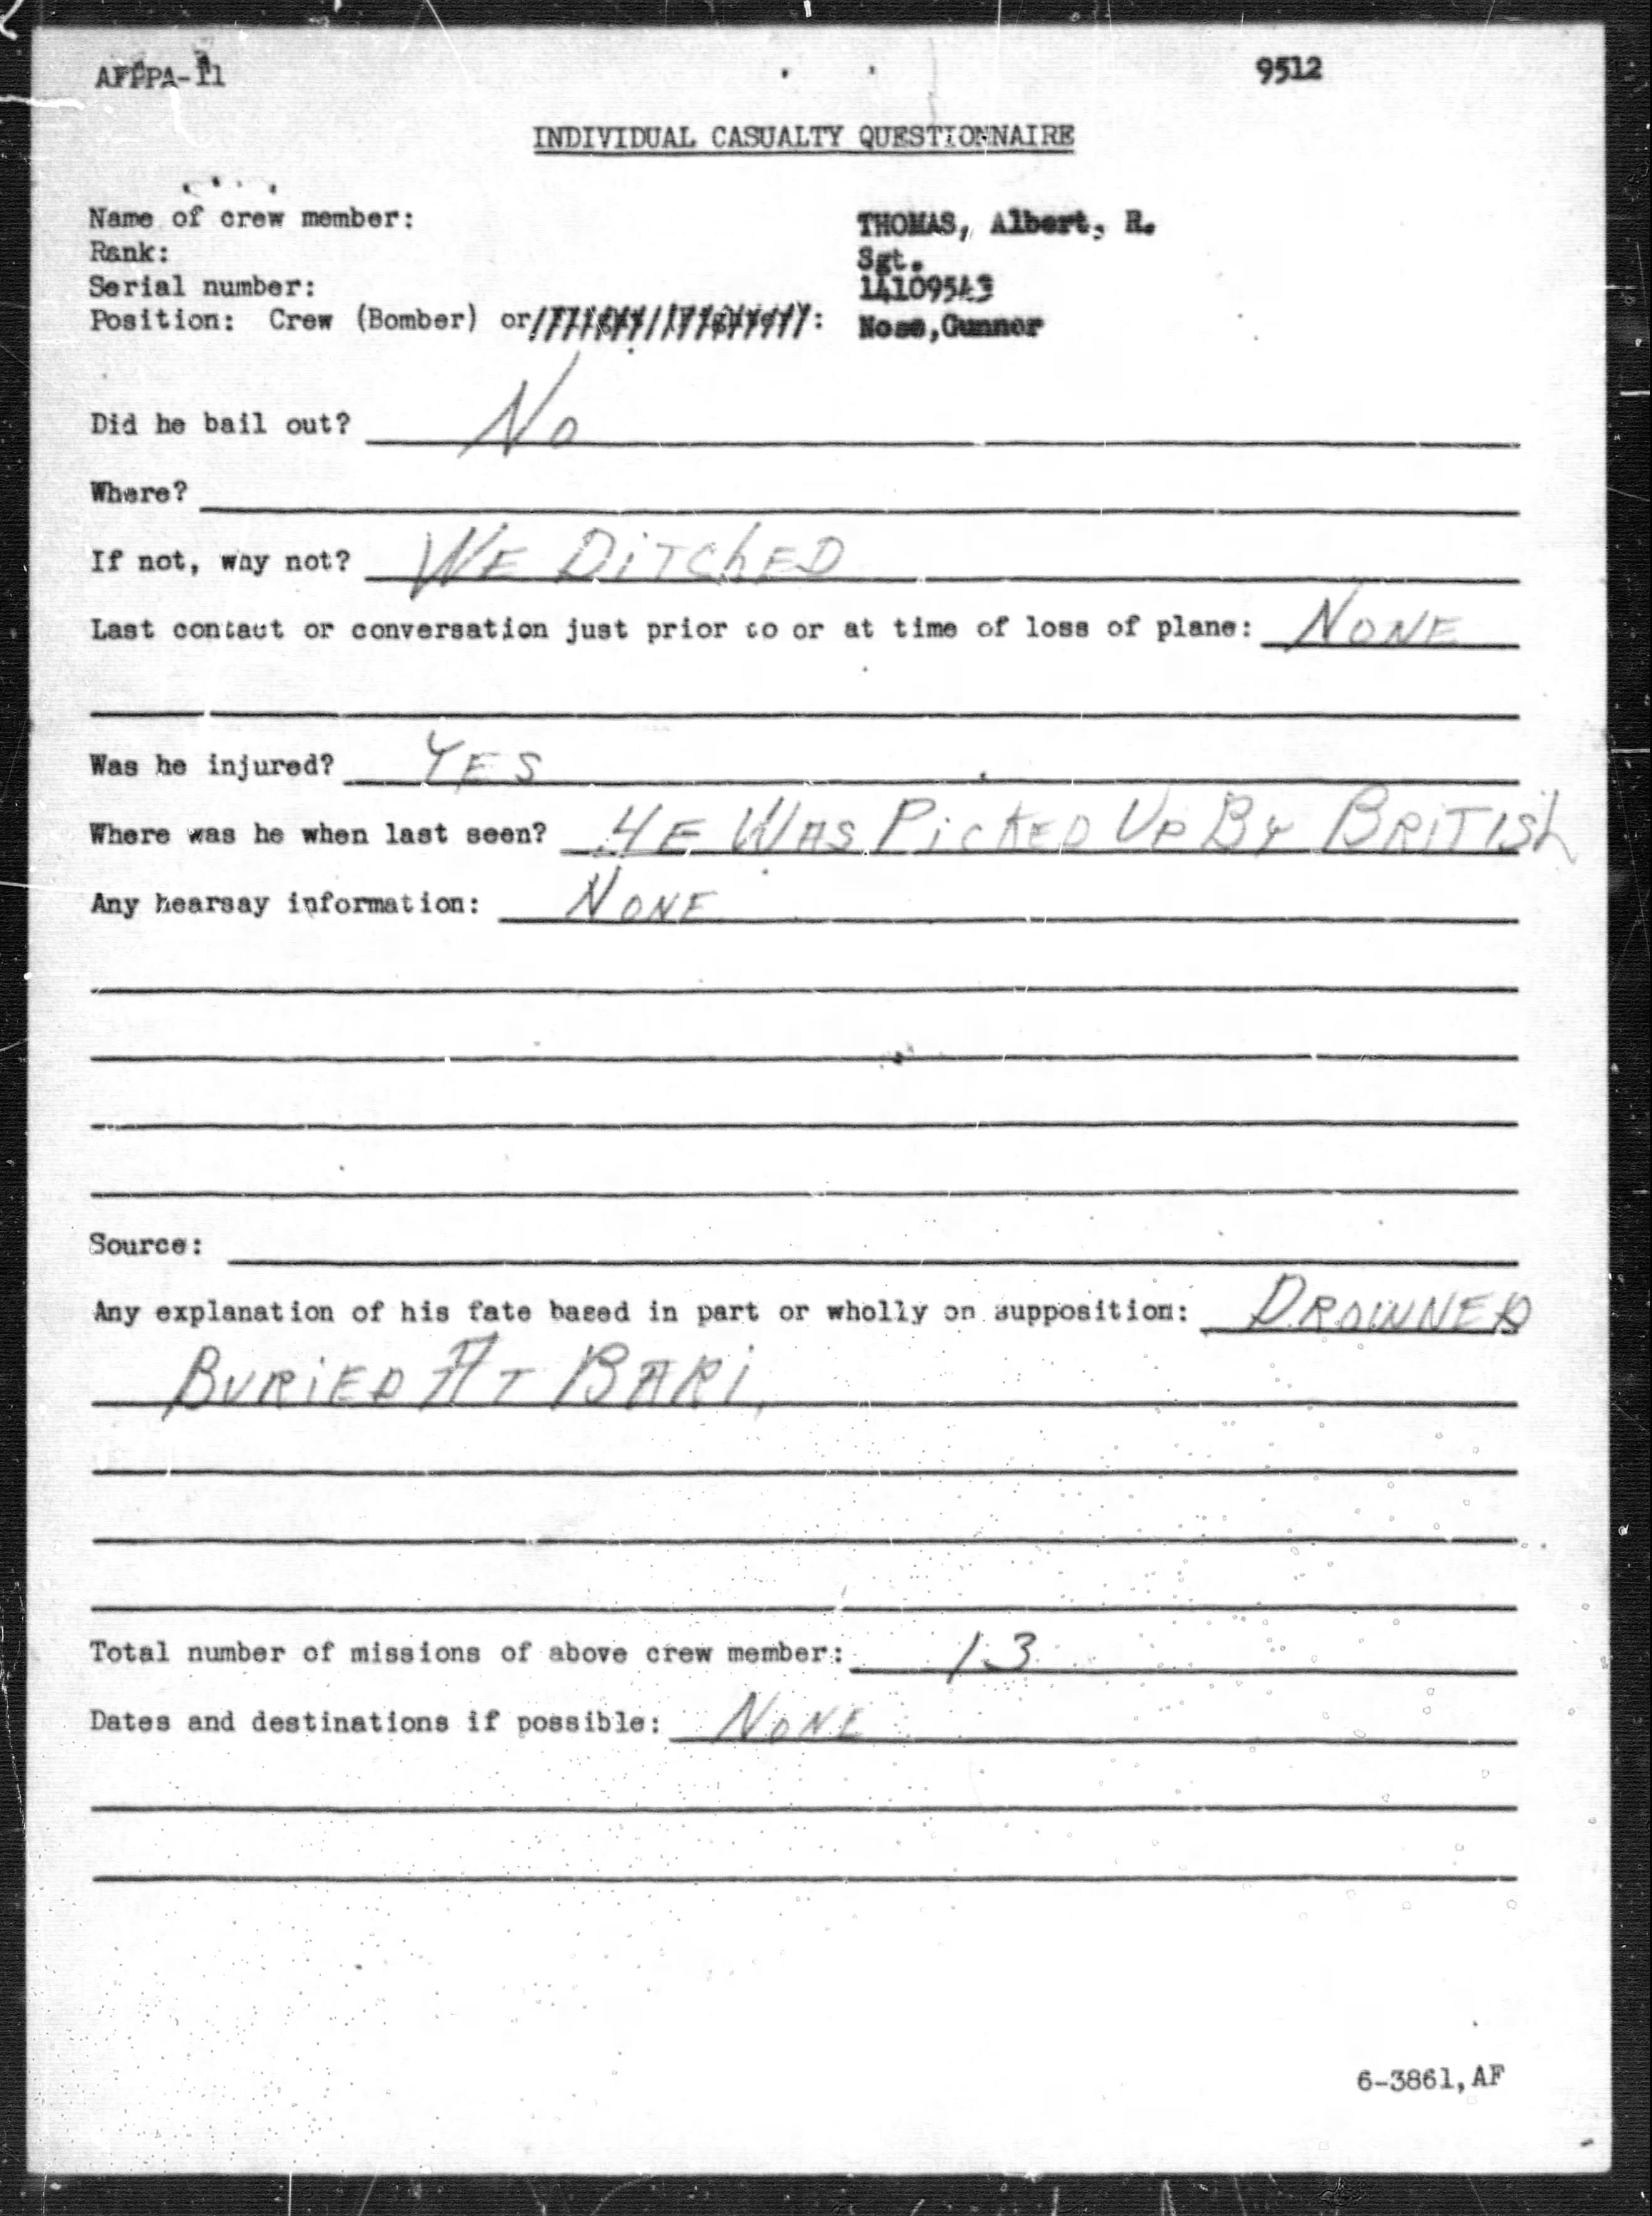 AFPPA-11
9512
INDIVIDUAL CASUALTY QUESTIONNAIRE
Name of crew member: THOMAS, Albert, R.
Rank: Sgt.
Serial number: 14109543
Position: Crew (Bomber) or : Nose,Gunner
Did he bail out? No
Where?
If not, why not? WE DITCHED
Last contact or conversation just prior to or at time of loss of plane: NONE
Was he injured? YES
Where was he when last seen? HE WAS PICKED UP BY BRITISH
Any hearsay information: NONE
Source:
Any explanation of his fate based in part or wholly on supposition: DROWNED
BURIED AT BARI.
Total number of missions of above crew member: 13
Dates and destinations if possible: NONE
6-3861,AF